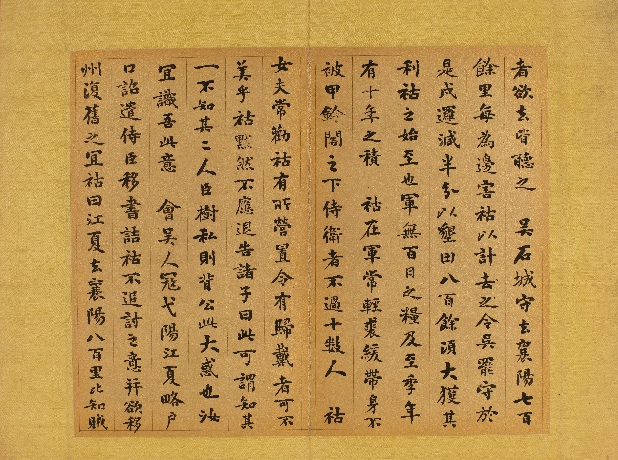 者欲去皆聽之　吴石城守去襄陽七百
餘里每為邊害祜以計去之令吴罷守於
是戍邏減半分以墾田八百餘頃大獲其
利祜之始至也軍無百日之糧及至季年
有十年之積　祜在軍常輕裘緩帶身不
被甲鈴閤之下侍衛者不過十數人　祜
女夫常勸祜有所營置令有歸戴者可不
美乎祜黙然不應退告諸子曰此可謂知其
一不知其二人臣樹私則背公此大惑也汝
宜識吾此意　會吴人寇弋陽江夏略户
口詔遣侍臣移書詰祜不追討之意并欲移
州復舊之宜祜曰江夏去襄陽八百里比知賊